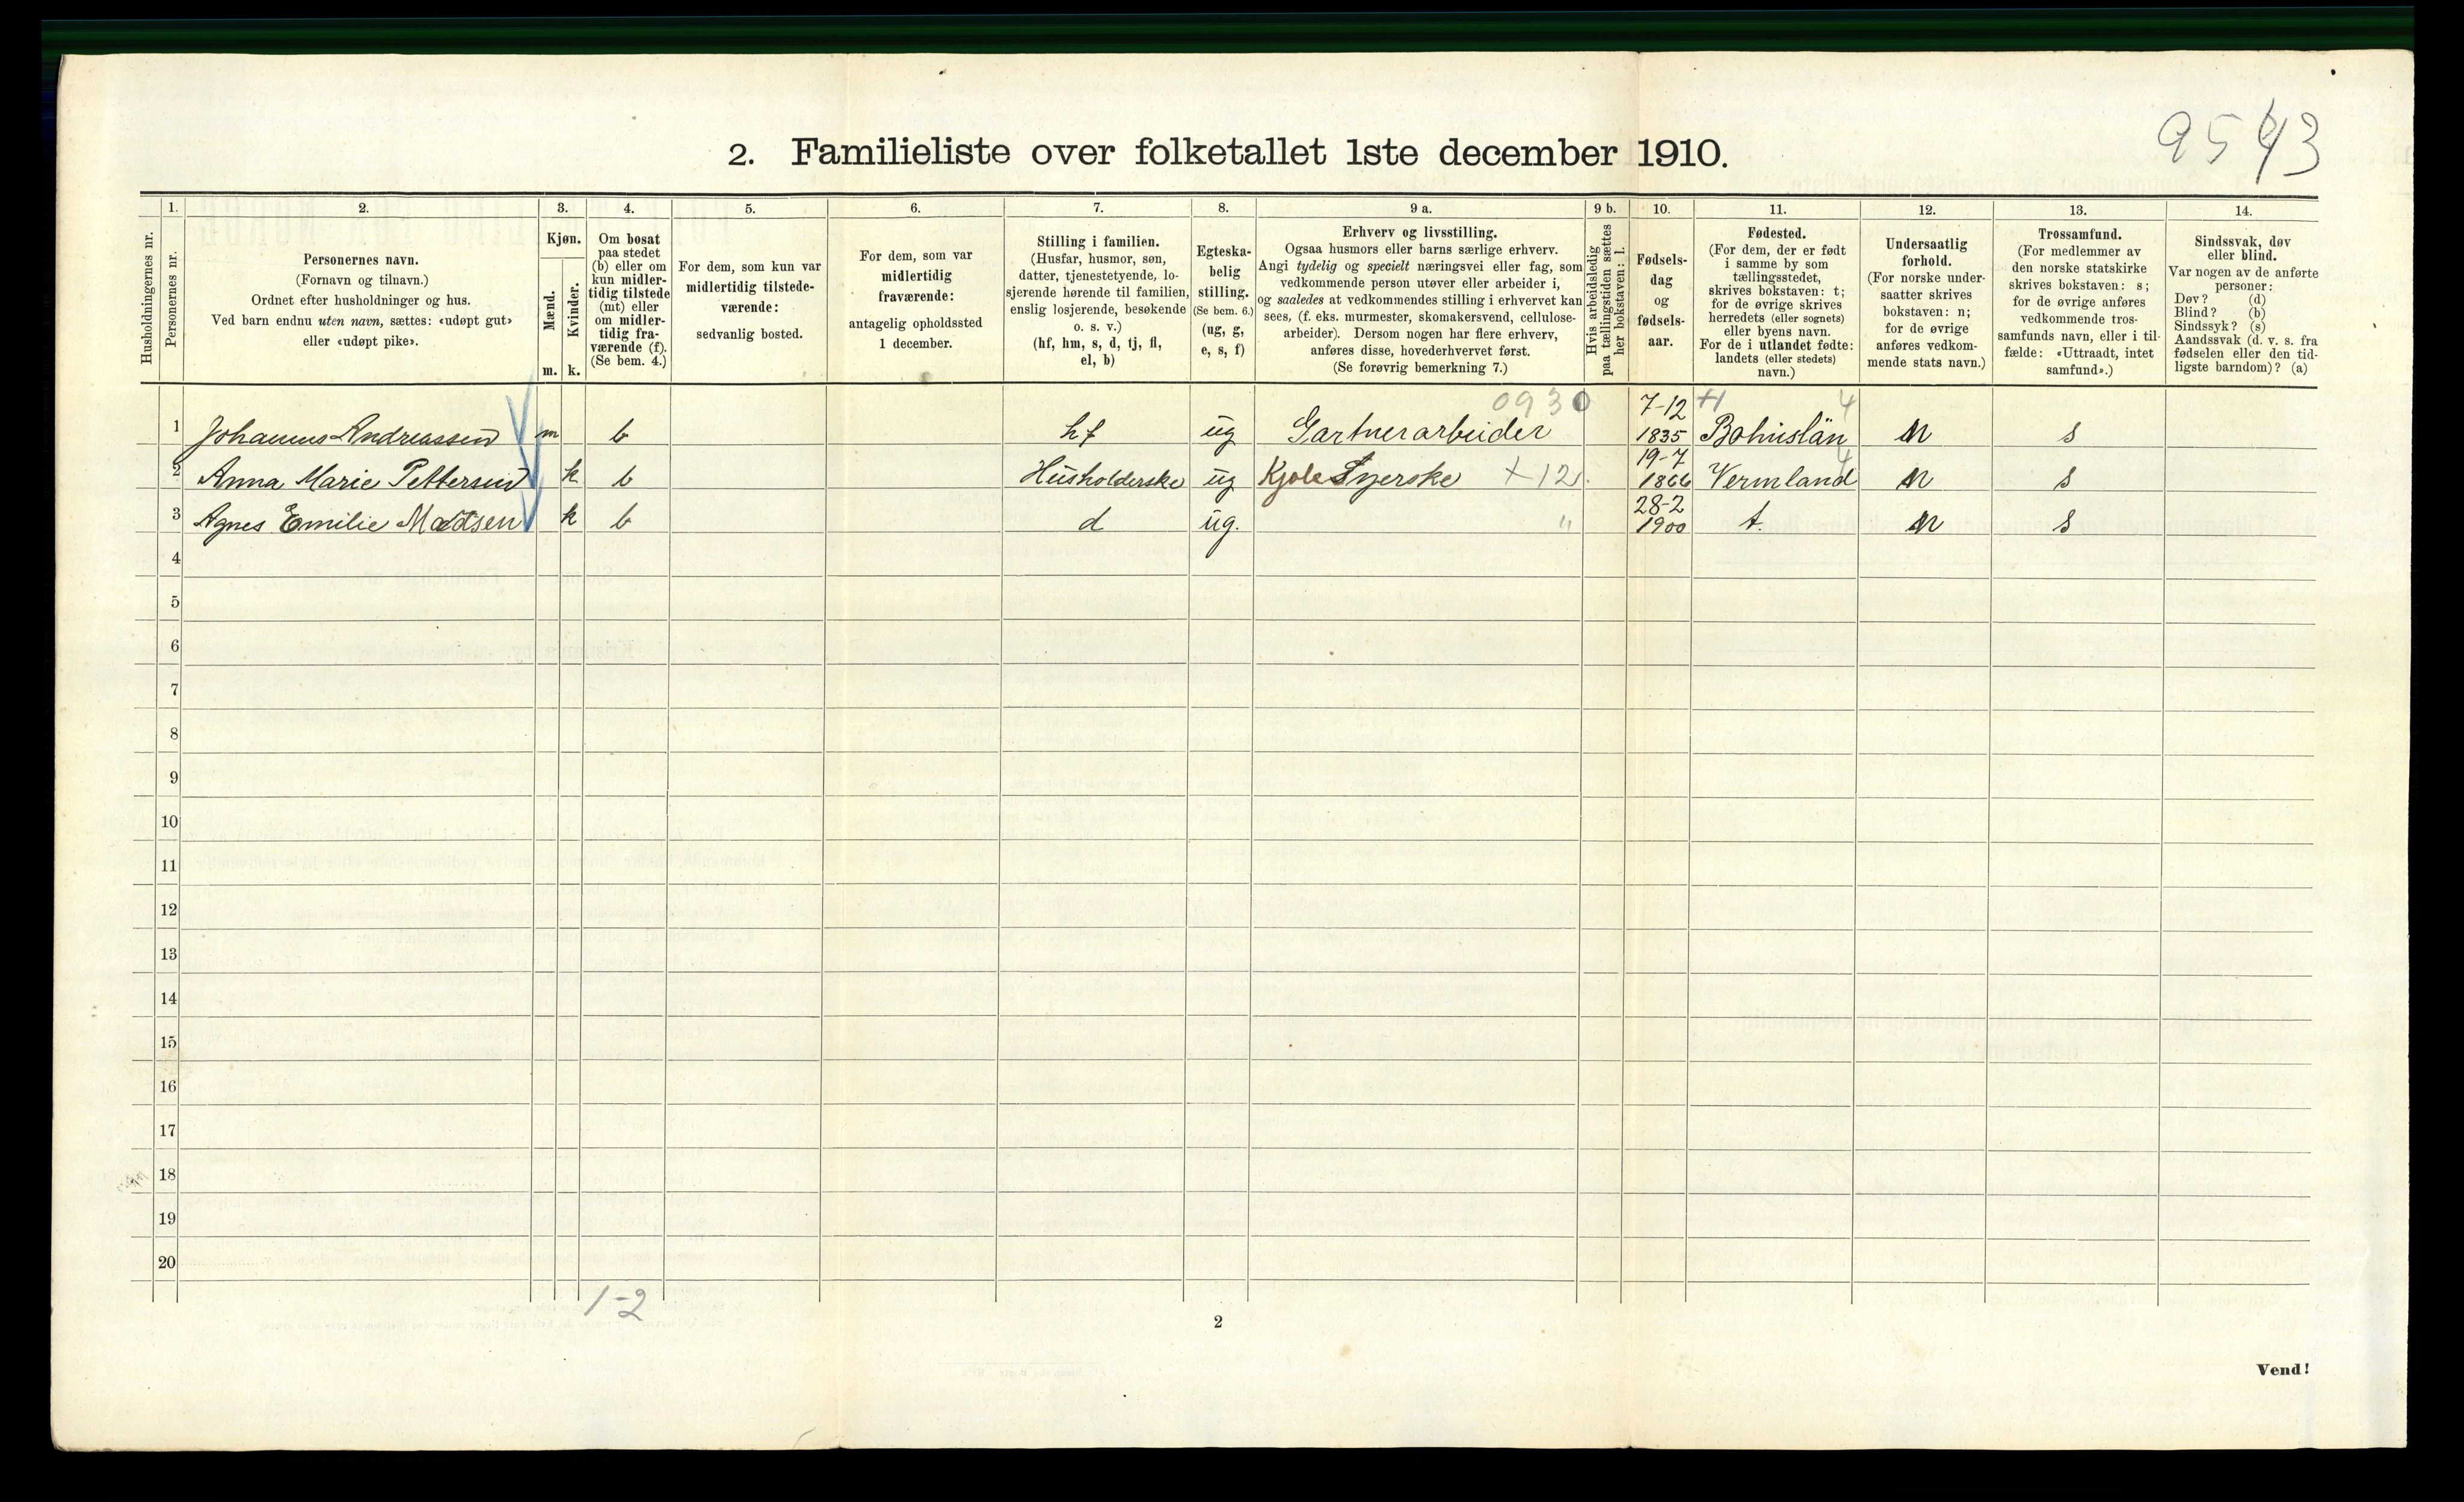 9543
2. Familieliste over folketallet 1ste december 1910.
Husholdningernes nr.
1. Personernes nr.
2. Personernes navn.
(Fornavn og tilnavn.)
Ordnet efter husholdninger og hus.
Ved barn endnu uten navn, sættes: «udøpt gut»
eller «udøpt pike».
3. Kjøn.
Mænd. m.
Kvinder. k.
4. Om bosat
paa stedet
(b) eller om
kun midler-
tidig tilstede
(mt) eller
om midler-
tidig fra-
værende (f).
(Se bem. 4.)
5. For dem, som kun var
midlertidig tilstede-
værende:
sedvanlig bosted.
6. For dem, som var
midlertidig
fraværende:
antagelig opholdssted
1 december.
7. Stilling i familien.
(Husfar, husmor, søn,
datter, tjenestetyende, lo-
sjerende hørende til familien,
enslig losjerende, besøkende
o. s. v.)
(hf, hm, s, d, tj, fl,
el, b)
8. Egteska-
belig
stilling.
(Se bem. 6.)
(ug, g,
e, s, f)
9 a. Erhverv og livsstilling.
Ogsaa husmors eller barns særlige erhverv.
Angi tydelig og specielt næringsvei eller fag, som
vedkommende person utøver eller arbeider i,
og saaledes at vedkommendes stilling i erhvervet kan
sees, (f. eks. murmester, skomakersvend, cellulose-
arbeider). Dersom nogen har flere erhverv,
anføres disse, hovederhvervet først.
(Se forøvrig bemerkning 7.)
9 b. Hvis arbeidsledig
paa tællingstiden sættes
her bokstaven: l.
10. Fødsels-
dag
og
fødsels-
aar.
11. Fødested.
(For dem, der er født
i samme by som
tællingsstedet,
skrives bokstaven: t;
for de øvrige skrives
herredets (eller sognets)
eller byens navn.
For de i utlandet fødte:
landets (eller stedets)
navn.)
12. Undersaatlig
forhold.
(For norske under-
saatter skrives
bokstaven: n;
for de øvrige
anføres vedkom-
mende stats navn.)
13. Trossamfund.
(For medlemmer av
den norske statskirke
skrives bokstaven: s;
for de øvrige anføres
vedkommende tros-
samfunds navn, eller i til-
fælde: «Uttraadt, intet
samfund».)
14. Sindssvak, døv
eller blind.
Var nogen av de anførte
personer:
Døv? (d)
Blind? (b)
Sindssyk? (s)
Aandssvak (d. v. s. fra
fødselen eller den tid-
ligste barndom)? (a)
0930 7-12 4
1 Johannes Andreassen m b hf ug Gartnerarbeider 1835 Bohuslän n s
19-7 4
2 Anna Marie Pettersen k b Husholderske ug Kjole Syerske +12 1866 Vermland n s
28-2
3 Agnes Emilie Madsen k b d ug. " 1900 t. n s
4
5
6
7
8
9
10
11
12
13
14
15
16
17
18
19
20
1-2
2
Vend!